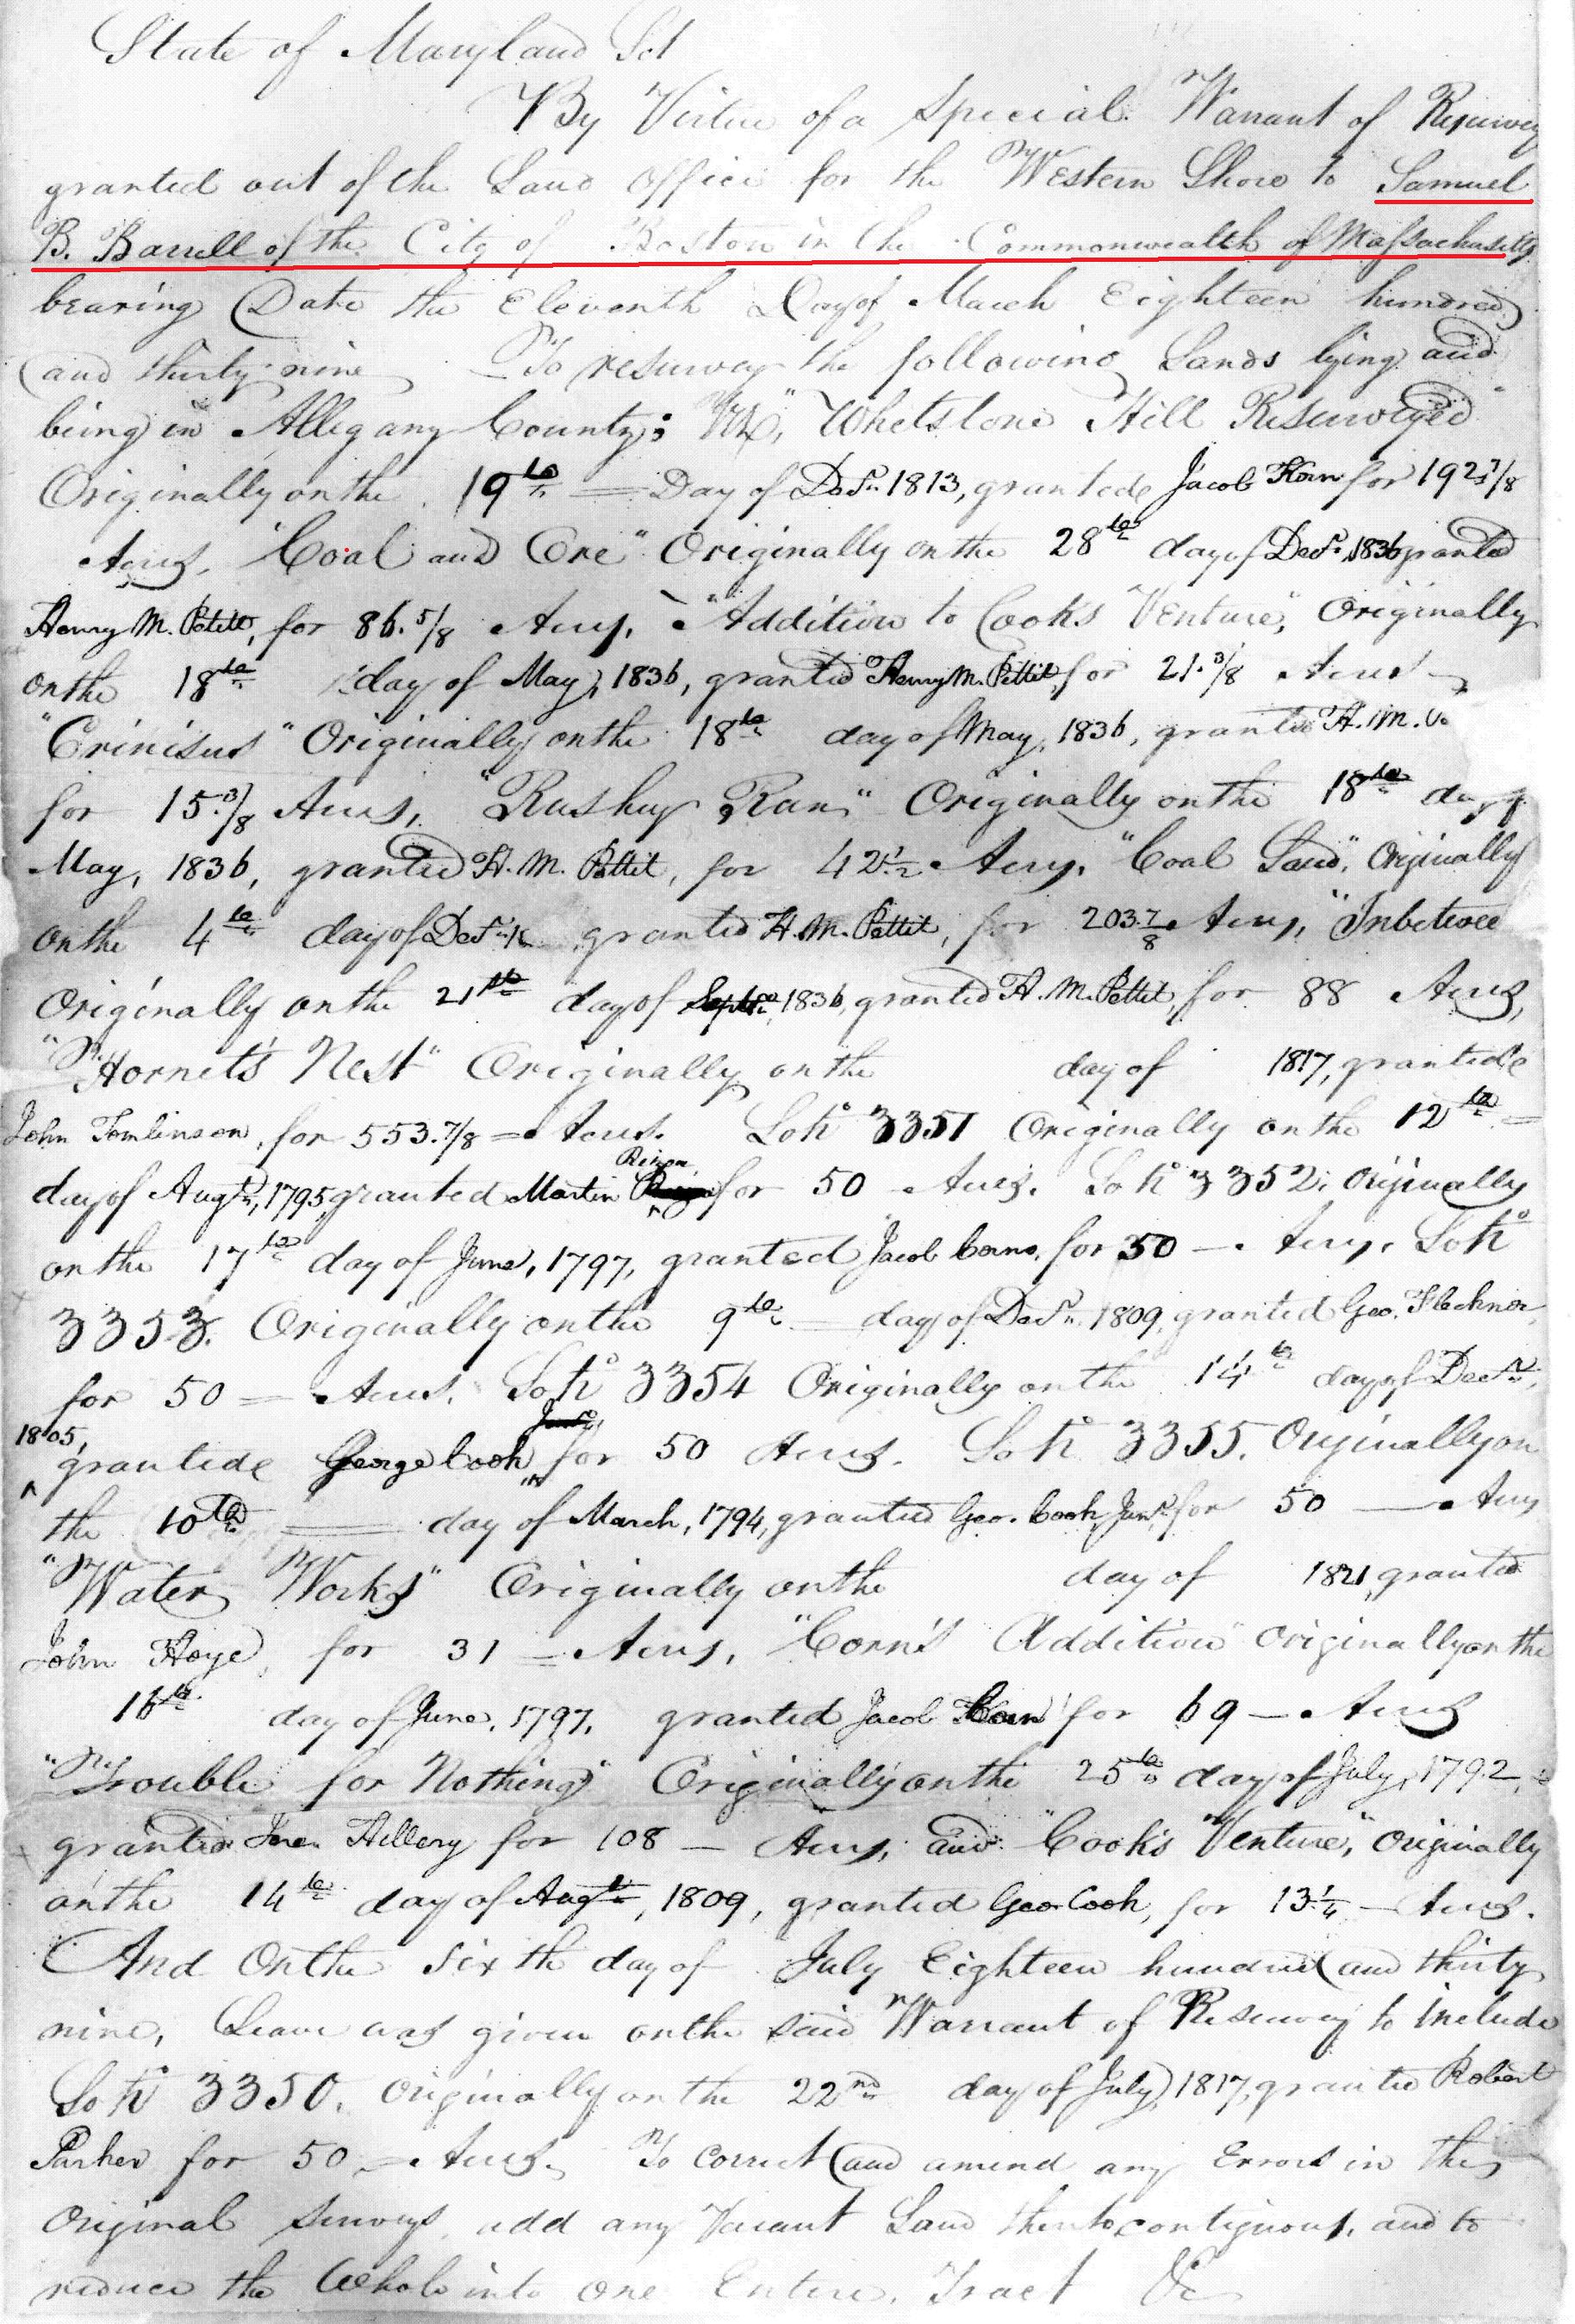 State of Maryland Sct
By Virtue of a Special Warrant of Resurvey
granted out of the Land Office for the Western Shore to Samuel
B. Barrell of the City of Boston in the Commonwealth of Massachusetts
bearing Date the Eleventh Day of March Eighteen hundred
and thirty nine To resurvey the following Lands lying and
being in Allegany County; Viz, "Whetstone Hill Resurveyed"
Originally on the 19th Day of Decr. 1813, granted Jacob Korn for 192 7/8
Acres, "Coal and Ore" Originally on the 28th day of Decr. 1836 granted
Henry M. Pettit, for 86. 5/8 Acres, "Addition to Cooks Venture," Originally
on the 18th day of May, 1836, granted Henry M. Pettit, for 21. 3/8 Acres
"Crinisus" Originally on the 18th day of May, 1836, granted H. M.
for 15. 3/8 Acres, "Rushy Run" Originally on the 18th day of
May, 1836, granted H. M. Pettit, for 42 1/2 Acres, "Coal Land", Originally
on the 4th day of Decr. granted H. M. Pettit, for 203. 7/8 Acres, "Inbetwee
Originally on the 21st day of Septr. 1836, granted H. M. Pettit, for 88 Acres,
"Hornet's Nest" Originally on the day of 1817, granted
John Tomlinson, for 553. 7/8 Acres. Lot No 3351 Originally on the 12th
day of Augt., 1795, granted Martin Rizon for 50 Acres. Lot No 3352. Originally
on the 17th day of June, 1797, granted Jacob Corns, for 50 Acres, Lot No
3353. Originally on the 9th day of Decr. 1809, granted Geo. Flechner,
for 50 Acres. Lot No 3354 Originally on the 14th day of Decr.
1805, granted George Cook Junr. for 50 Acres. Lot No 3355. Originally on
the 10th day of March, 1794, granted Geo. Cook, Junr. for 50 Acres
"Water Works" Originally on the day of 1821, granted
John Hoye, for 31 Acres, "Corn's Addition" Originally on the
16th day of June, 1797, granted Jacob Korn for 69 Acres
"Trouble for Nothing" Originally on the 25th day of July, 1792,
granted Hillery for 108 Acres, and "Cook's Venture," Originally
on the 14th day of Augt., 1809, granted Geo. Cook, for 13 1/4 Acres.
And On the sixth day of July Eighteen hundred and thirty
nine, Leave was given on the said Warrant of Resurvey to include
Lot No 3350. Originally on the 22nd day of July, 1817, granted Robert
Parker for 50 Acres. To correct and amend any Errors in the
Original surveys, add any Vacant Land thereto contiguous, and to
reduce the Whole into one Entire Tract &c